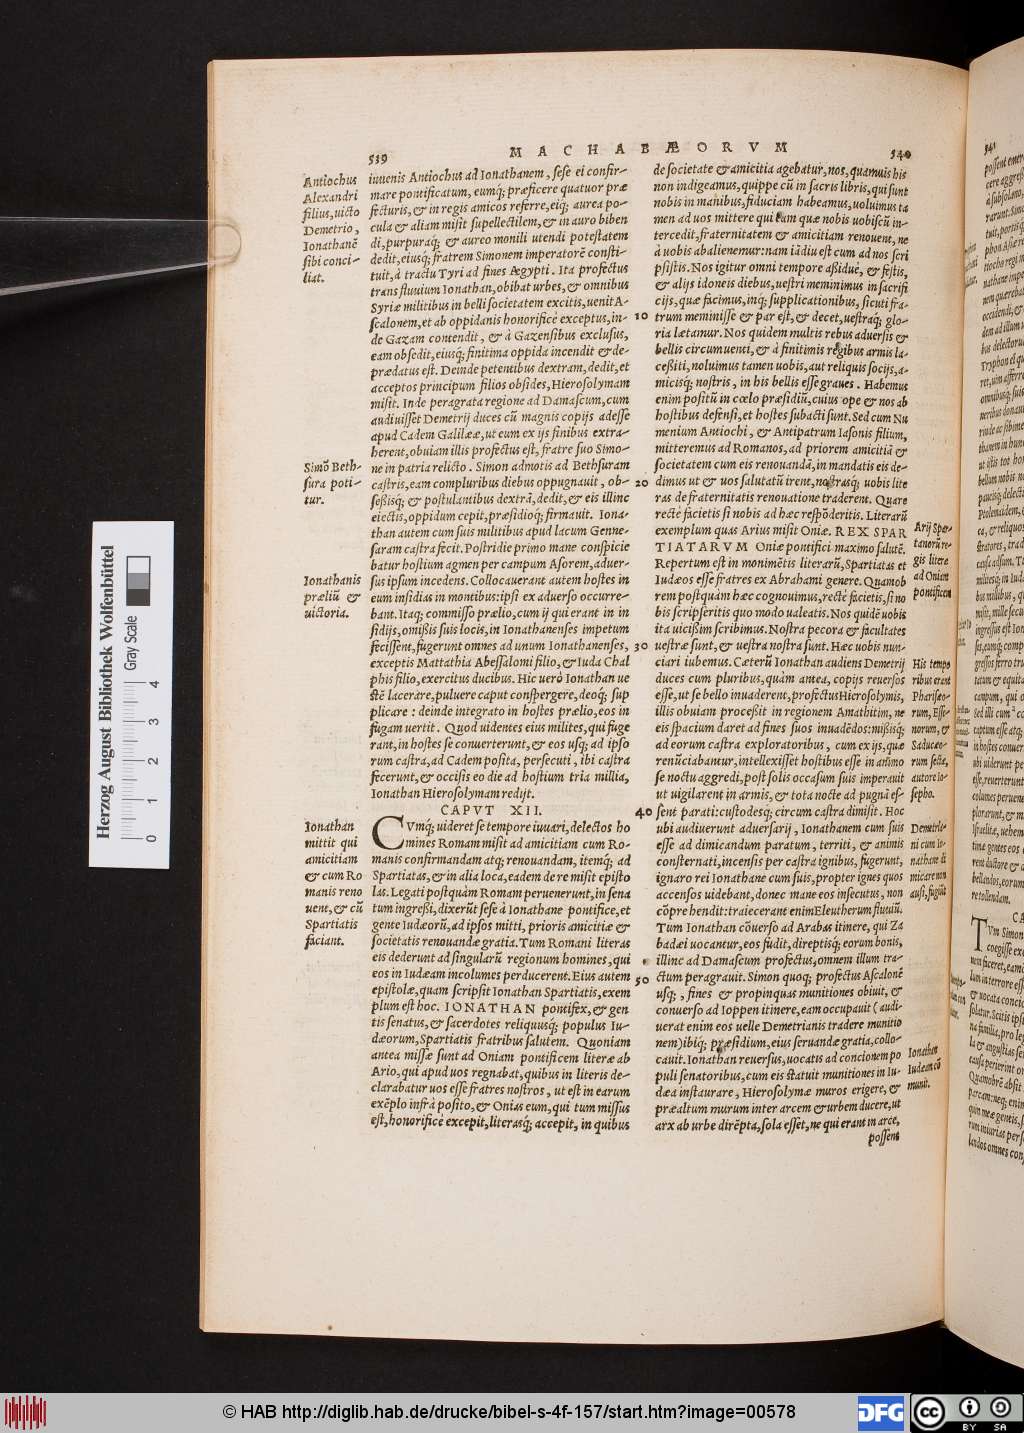 539
MACHABÆORVM
540
Antiochus
Alexandri
filius, uicto
Demetrio,
Ionathanẽ
sibi conci-
liat.
iuuenis Antiochus ad Ionathanem, sese ei confir-
mare pontificatum, eumq; præficere quatuor præ
fecturis, & in regis amicos referre, eiq; aurea po-
cula & aliam misit supellectilem, & in auro biben
di, purpuraq; & aureo monili utendi potestatem
dedit, eiusq; fratrem Simonem imperatorẽ consti-
tuit, à tractu Tyri ad fines Ægypti. Ita profectus
trans fluuium Ionathan, obibat urbes, & omnibus
Syriæ militibus in belli societatem excitis, uenit A-
scalonem, et ab oppidanis honorificè exceptus, in-
de Gazam contendit, & à Gazensibus exclusus,
eam obsedit, eiusq; finitima oppida incendit & de-
prædatus est. Deinde petentibus dextram, dedit, et
acceptos principum filios obsides, Hierosolymam
misit. Inde peragrata regione ad Damascum, cum
audiuisset Demetrij duces cũ magnis copijs adesse
apud Cadem Galilææ, ut eum ex ijs finibus extra-
herent, obuiam illis profectus est, fratre suo Simo-
ne in patria relicto. Simon admotis ad Bethsuram
castris, eam compluribus diebus oppugnauit, ob-
sessisq; & postulantibus dextrã, dedit, & eis illinc
eiectis, oppidum cepit, præsidioq; firmauit. Iona-
than autem cum suis militibus apud lacum Genne-
saram castra fecit. Postridie primo mane conspicie
batur hostium agmen per campum Asorem, aduer-
sus ipsum incedens. Collocauerant autem hostes in
eum insidias in montibus: ipsi ex aduerso occurre-
bant. Itaq; commisso prælio, cum ij qui erant in in
sidijs, omissis suis locis, in Ionathanenses impetum
fecissent, fugerunt omnes ad unum Ionathanenses,
exceptis Mattathia Abessalomi filio, & Iuda Chal
phis filio, exercitus ducibus. Hic uerò Ionathan ue
stẽ lacerare, puluere caput conspergere, deoq; sup
plicare: deinde integrato in hostes prælio, eos in
fugam uertit. Quod uidentes eius milites, qui fuge
rant, in hostes se conuerterunt, & eos usq; ad ipso
rum castra, ad Cadem posita, persecuti, ibi castra
fecerunt, & occisis eo die ad hostium tria millia,
Ionathan Hierosolymam redijt.
Simõ Beth-
sura poti-
tur.
Ionathanis
præliũ &
uictoria.
CAPVT XII.
CVmq; uideret se tempore iuuari, delectos ho
mines Romam misit ad amicitiam cum Ro-
manis confirmandam atq; renouandam, itemq; ad
Spartiatas, & in alia loca, eadem de re misit episto
las. Legati postquàm Romam peruenerunt, in sena
tum ingressi, dixerũt sese à Ionathane pontifice, et
gente Iudæorũ, ad ipsos mitti, prioris amicitiæ &
societatis renouandæ gratia. Tum Romani literas
eis dederunt ad singularũ regionum homines, qui
eos in Iudæam incolumes perducerent. Eius autem
epistolæ, quam scripsit Ionathan Spartiatis, exem
plum est hoc. IONATHAN pontifex, & gen
tis senatus, & sacerdotes reliquusq; populus Iu-
dæorum, Spartiatis fratribus salutem. Quoniam
antea missæ sunt ad Oniam pontificem literæ ab
Ario, qui apud uos regnabat, quibus in literis de-
clarabatur uos esse fratres nostros, ut est in earum
exẽplo infrà posito, & Onias eum, qui tum missus
est, honorificè excepit, literasq; accepit, in quibus
Ionathan
mittit qui
amicitiam
& cum Ro
manis reno
uent, & cũ
Spartiatis
faciant.
10
20
30
40
50
de societate & amicitia agebatur, nos, quamuis his
non indigeamus, quippe cũ in sacris libris, qui sunt
nobis in manibus, fiduciam habeamus, uoluimus ta
men ad uos mittere qui eam quæ nobis uobiscũ in-
tercedit, fraternitatem & amicitiam renouent, ne
à uobis abalienemur: nam iã diu est cum ad nos scri
psistis. Nos igitur omni tempore assiduè, & festis,
& alijs idoneis diebus, uestri meminimus in sacrifi
cijs, quæ facimus, inq; supplicationibus, sicuti fra-
trum meminisse & par est, & decet, uestraq; glo-
ria lætamur. Nos quidem multis rebus aduersis &
bellis circumuenti, & à finitimis regibus armis la-
cessiti, noluimus tamen uobis, aut reliquis socijs, a-
micisq; nostris, in his bellis esse graues. Habemus
enim positũ in cœlo præsidiũ, cuius ope & nos ab
hostibus defensi, et hostes subacti sunt. Sed cum Nu
menium Antiochi, & Antipatrum Iasonis filium,
mitteremus ad Romanos, ad priorem amicitiã &
societatem cum eis renouandã, in mandatis eis de-
dimus ut & uos salutatũ irent, nostrasq; uobis lite
ras de fraternitatis renouatione traderent. Quare
rectè facietis si nobis ad hæc respõderitis. Literarũ
exemplum quas Arius misit Oniæ. REX SPAR
TIATARVM Oniæ pontifici maximo salutẽ.
Repertum est in monimẽtis literarũ, Spartiatas et
Iudæos esse fratres ex Abrahami genere. Quamob
rem postquàm hæc cognouimus, rectè facietis, si no
bis scripseritis quo modo ualeatis. Nos quidẽ uobis
ita uicissim scribimus. Nostra pecora & facultates
uestræ sunt, & uestra nostra sunt. Hæc uobis nun-
ciari iubemus. Cæterũ Ionathan audiens Demetrij
duces cum pluribus, quàm antea, copijs reuersos
esse, ut se bello inuaderent, profectus Hierosolymis,
illis obuiam processit in regionem Amathitim, ne
eis spacium daret ad fines suos inuadẽdos: missisq;
ad eorum castra exploratoribus, cum ex ijs, quæ
renũciabantur, intellexisset hostibus esse in animo
se noctu aggredi, post solis occasum suis imperauit
ut uigilarent in armis, & tota nocte ad pugnã es-
sent parati: custodesq; circum castra dimisit. Hoc
ubi audiuerunt aduersarij, Ionathanem cum suis
esse ad dimicandum paratum, territi, & animis
consternati, incensis per castra ignibus, fugerunt,
ignaro rei Ionathane cum suis, propter ignes quos
accensos uidebant, donec mane eos insecutus, non
cõprehendit: traiecerant enim Eleutherum fluuiũ.
Tum Ionathan cõuerso ad Arabas itinere, qui Za
badæi uocantur, eos fudit, direptisq; eorum bonis,
illinc ad Damascum profectus, omnem illum tra-
ctum peragrauit. Simon quoq; profectus Ascalonẽ
usq;, fines & propinquas munitiones obiuit, &
conuerso ad Ioppen itinere, eam occupauit (audi-
uerat enim eos uelle Demetrianis tradere munitio
nem) ibiq; præsidium, eius seruandæ gratia, collo-
cauit. Ionathan reuersus, uocatis ad concionem po
puli senatoribus, cum eis statuit munitiones in Iu-
dæa instaurare, Hierosolymæ muros erigere, &
præaltum murum inter arcem & urbem ducere, ut
arx ab urbe dirẽpta, sola esset, ne qui erant in arce,
possent
Arij Spar-
tanorũ re-
gis literæ
ad Oniam
pontificem
His tempo
ribus erant
Pharisæo-
rum, Esse-
norum, &
Saducæo-
rum sectæ,
autore Io-
sepho.
Demetria-
ni cum Io-
nathane di
micare non
ausi, fugiũt
Ionathan
Iudæam cõ
munit.
541
Herzog August Bibliothek Wolfenbüttel
Gray Scale
0 1 2 3 4
© HAB http://diglib.hab.de/drucke/bibel-s-4f-157/start.htm?image=00578
DFG
cc
BY SA